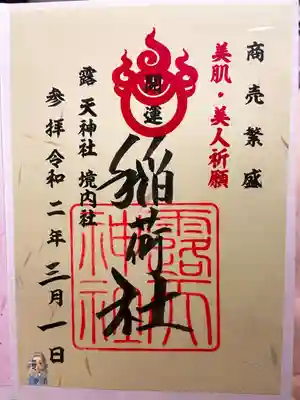 商売繁盛
美肌・美人祈願
開運
稲荷社
露天神社
露天神社 境内社
参拝 令和二年三月一日